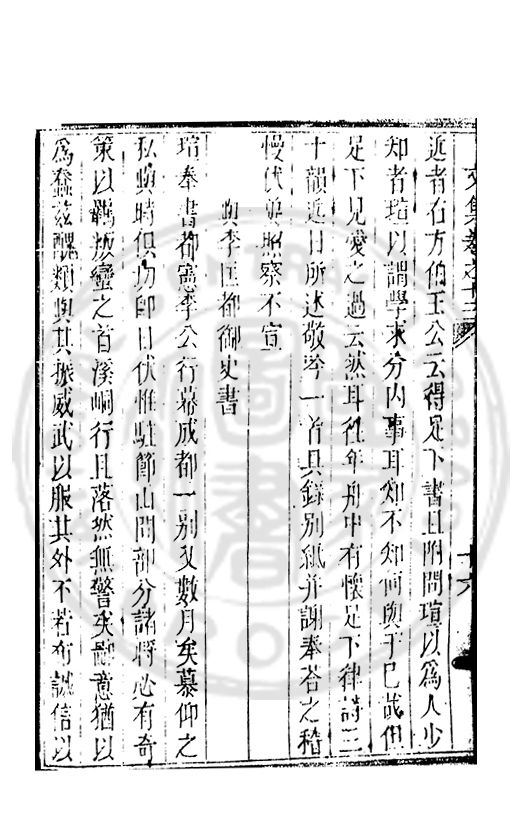 文集卷之十三
十六
近者右方伯王公云得足下書且附問瑄以為人少
知者瑄以謂學求分内事耳知不知何與于已哉但
足下見愛之過云然耳往年舟中有懷足下律詩三
十韻近日所述敬岑一首具錄别紙并謝奉荅之稽
慢伏與照察不宣
與李匡都御史書
瑄奉書都憲李公行幕成都一别又數月矣慕仰之
私與時俱功即日伏惟駐節山間部分諸將必有奇
策以羈叛蠻之首溪峒行且落然無警矣鄙意猶以
為蠢兹醜類與其振威武以服其外不若布誠信以